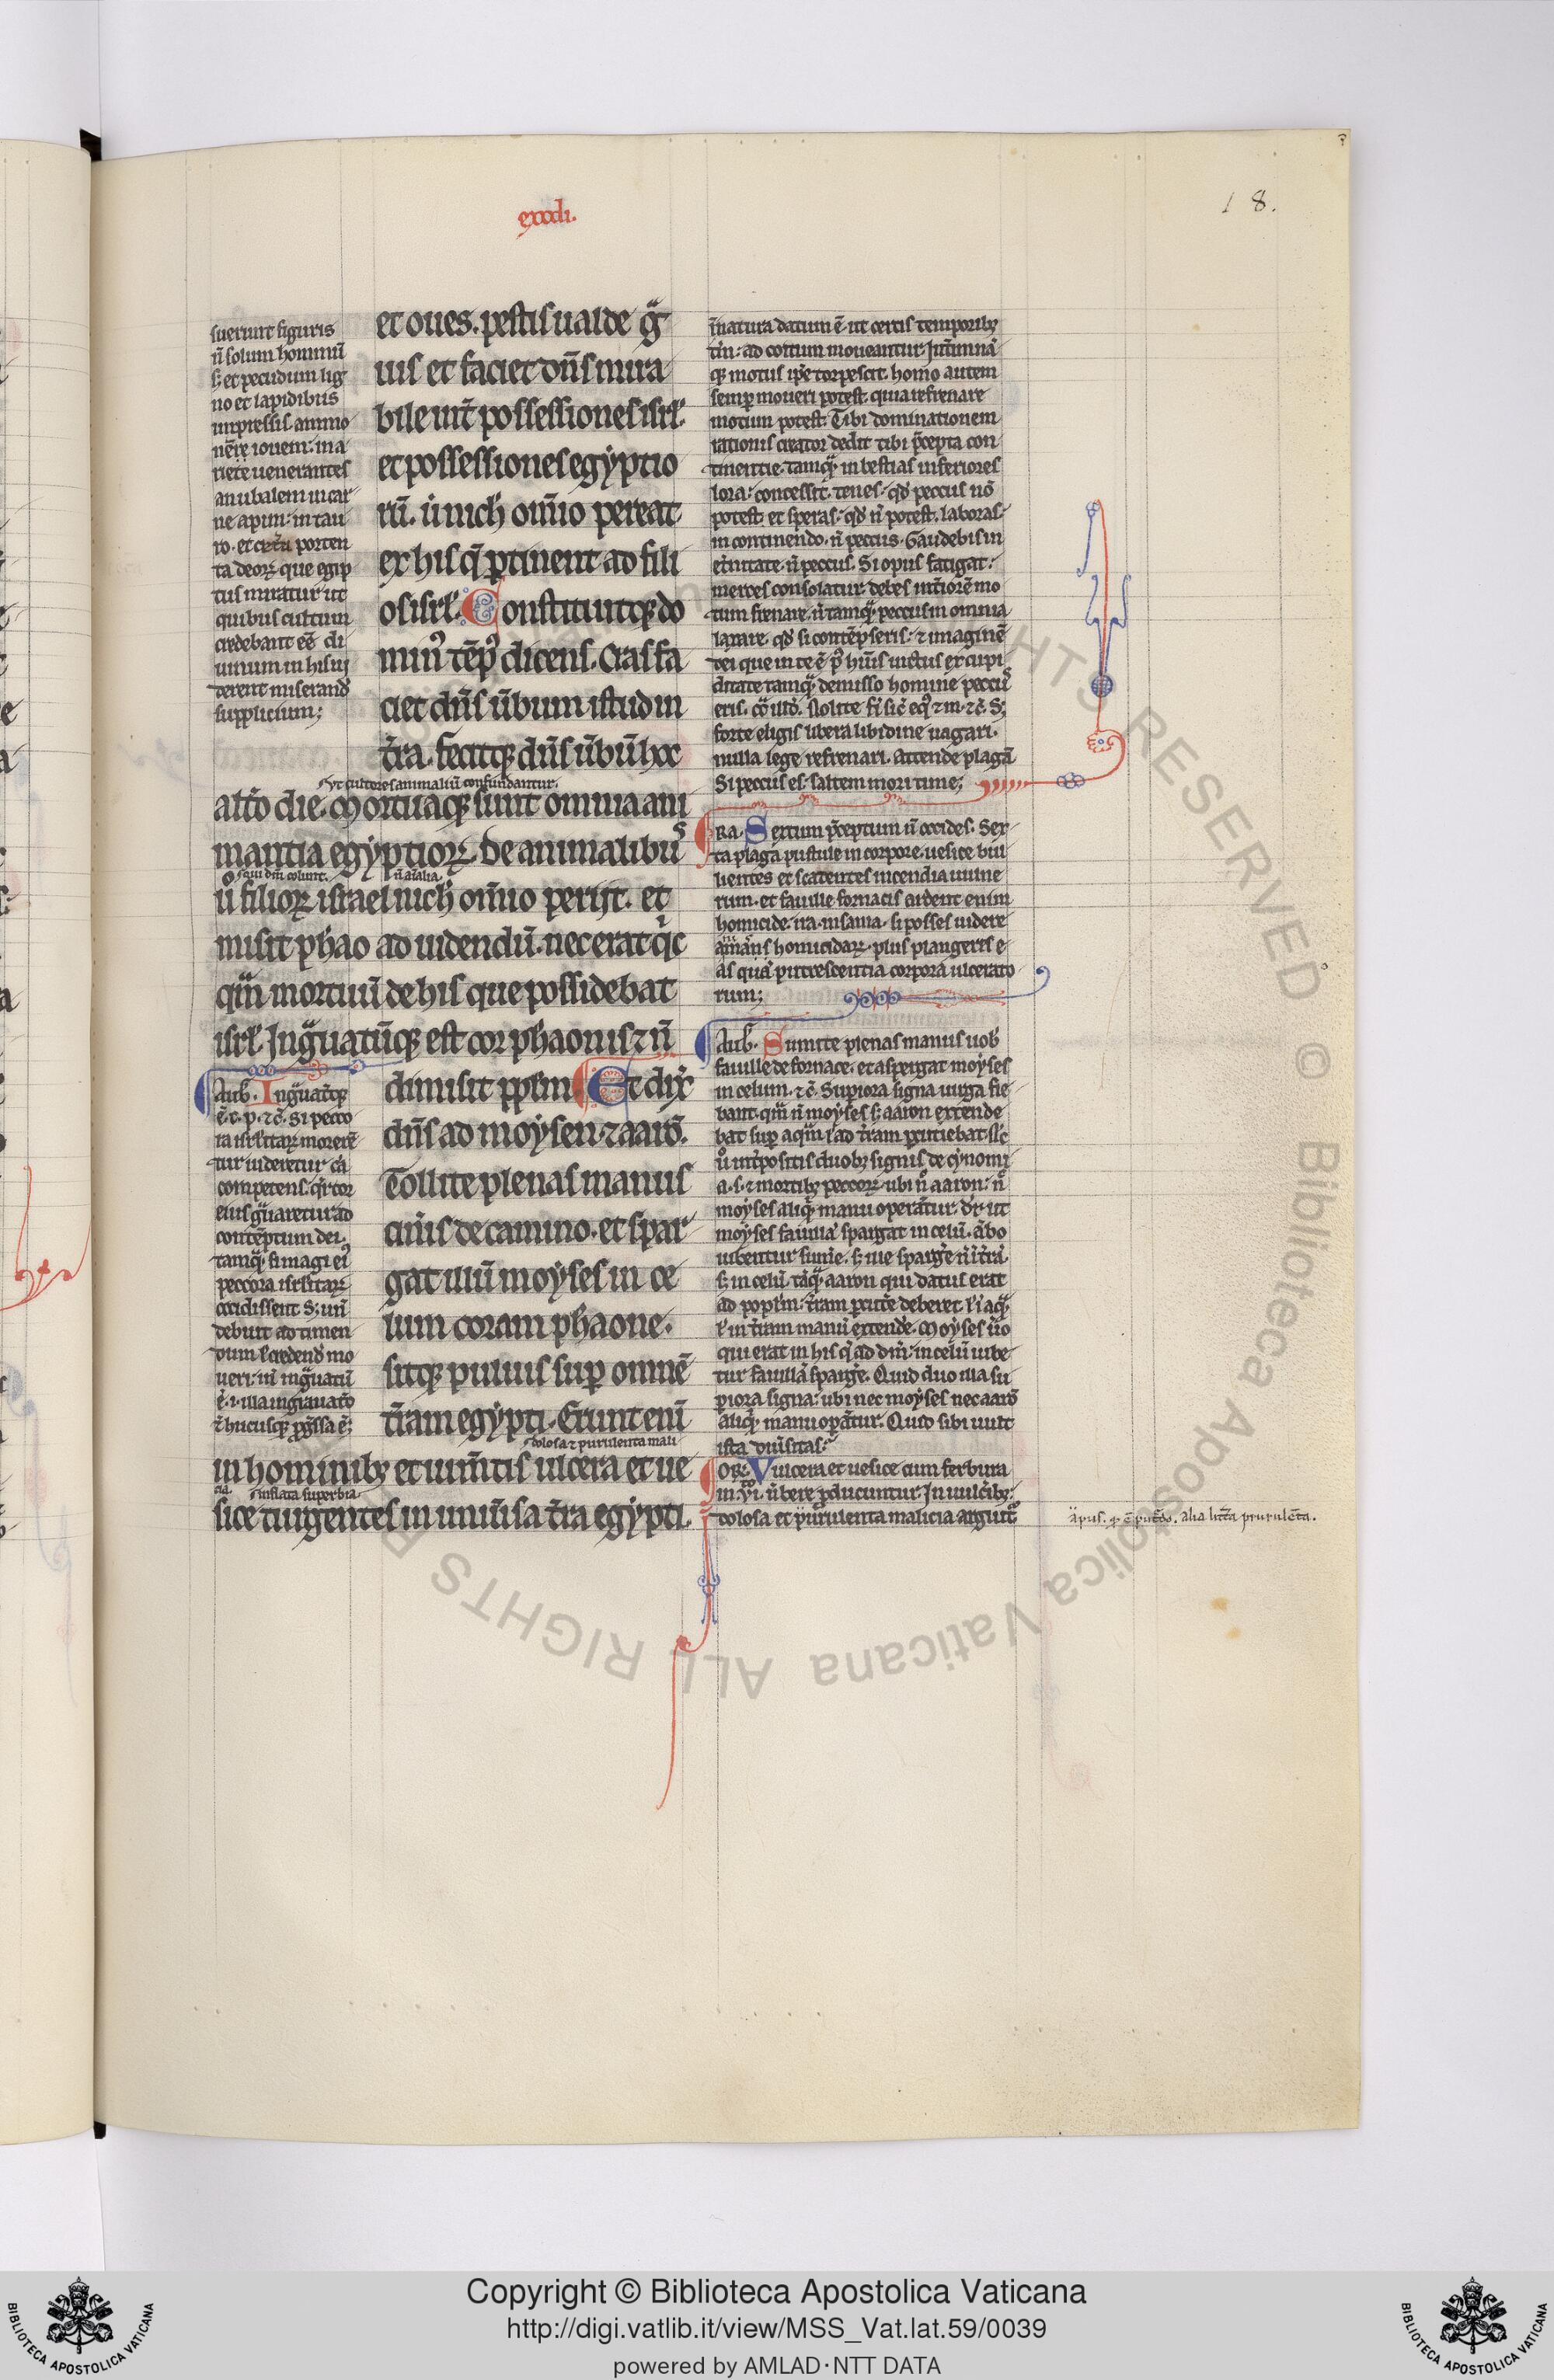 exodi.
18.
suerunt figuris
n̄ solum hominū
s; et pecudum lig
no et lapidibus
impressis. ammo
nē ̄re iouem: in a
riete uenerantes
anubalem in car
ne apim: in tau
ro. et cetera porten
ta deoꝝ que egip
tus miratur ut
quibus cultum
credebant eē di
uinum in his ui
derent miserand̄
supplicium;
et oues. pestis ualde gͣ
uis et faciet dn̄s mira
bile int̄ possessiones isrl̓.
et possessiones egyptio
rū. ut nich̓ om̄ino pereat
ex his q̄ ꝑtinent ad fili
os isrl̓. Constituitqꝫ do
minꝰ tēpꝰ dicens. Cras fa
ciet dn̄s ūbum istud in
t̄ra. fecitqꝫ dn̄s ūbū hoc
Vt cultores animaliū confundantur.
alt̄o die. Mortuaqꝫ sunt omnia ani
mantia egyptioꝝ. De animalibus
qui dm̄ colunt.
ū filioꝝ israel nich̓ om̄ino periit. et
misit phao ad uidendū. nec erat qͥc
qͣm mortuū de his que possidebat
isrl̓. Ingͣuatūqꝫ est cor phaonis ⁊ n̄
dimisit ppl̓m. Et dix̄
dn̄s ad moysen ⁊ aarō.
Tollite plenas manus
cin̄is de camino. et spar
gat illū moyses in ce
lum coram phaone.
sitqꝫ puluis suꝑ omnē
t̄ram egypti. Erunt enī
dolosa ⁊ purulenta mali
in hominibꝫ et ium̄tis ulcera et ue
cia
inflata superbia
sice turgentes in uniūsa t̄ra egypti.
Aug. Ingͣuatūqꝫ
ē. c. p. ⁊c̄. Si pecco
ra isrl̓itaꝝ morerē
tur uideretur cā
competens. qͬ cor
eius gͣuaretur ad
contēptum dei.
tamqͣ si magi eiꝰ
peccora isrl̓itaꝝ
occidissent. S; un̄
debuit ad timen
dum l̓ credend̄ mo
ueri: in̄ ingͣuatū
ē. i. illa ingrauatō
⁊ hucusqꝫ ꝓgͤssa ē;
ī natura datum ē ut certis temporibꝫ
tm̄: ad coitum moueantur. Int̄im nā
qꝫ motus ip̄e torpescit. homo autem
semꝑ moueri potest. quia refrenare
motum potest. Tibi dominationem
rationis creator dedit tibi p̄cepta con
tinentie. tamqͣ in bestias inferiores
lora: concessit. tenes: qd̓ peccus nō
potest. et speras: qd̓ n̄ potest. laboras
in continendo. n̄ peccus. Gaudebis in
et̄nitate. n̄ peccus. Si opus fatigat:
merces consolatur. debes int̄iorē mo
tum frenare. n̄ tamqͣ peccus in omnia
laxare. qd̓ si contēpseris: ⁊ imaginē
dei que in te ē pꝰ huīs uictus et cupi
ditate tamqͣ demisso homine peccuˢ
eris. Nolite fi̓ sic̄ eqꝰ ⁊ m. ⁊c̄. S;
forte eligis libera libidine uagari.
nulla lege refrenari. attende plagā
Si peccus es: saltem mori time;
RA. Sextum p̄ceptum n̄ occides. Sex
ta plaga pustule in corpore. uesice bul
lientes et scatentes incendia uulne
rum. et fauille fornacis ardent enim
homicide ira insania. si posses uidere
aīmas homicidaꝝ. plus plangeres e
as quā putrescentia corpora ulcerato
rum;
Aug. Sumite plenas manus uob̓
fauille de fornace. et aspergat moyses
in celum. ⁊c̄. Suꝑiora signa uirga fie
bant. qͣm n̄ moyses s; aaron extende
bat suꝑ aquā l̓ ad t̄ram ꝑcutiebat. s; c̄
ū int̄positis duobꝫ signis de cynomi
a. s. ⁊ mortibꝫ peccoꝝ. ubi n̄ aaron: n̄
moyses aliqͣ manu operātur. dr̄ ut
moyses fauillā spargat in celū. ābo
iubentur sumē. s; iste spargē n̄ ī t̄rā.
s; in celū. tāqͣ aaron qui datus erat
ad popl̓m: t̄ram ꝑcutē deberet. l̓ ī aqͣ.
l̓ in t̄ram manū extendē. Moyses ūo
qui erat in his q̄ ad dm̄: in celū iube
tur fauillā spargē. Quid duo illa su
ꝑiora signa: ubi nec moyses nec aarō
aliqͣ manu oꝑātur. Quid sibi uult
ista diūsitas?
ORI. Vulcera et uesice cum feruura
in. ūbere ꝓducuntur. In uulc̄ibꝫ:
dolosa et purulenta malicia arguit᷑
a pus. qͦd ē putredo. alia litt̄a prurulēta.
Copyright © Biblioteca Apostolica Vaticana
http://digi.vatlib.it/view/MSS_Vat.lat.59/0039
powered by AMLAD·NTT DATA
BIBLIOTECA APOSTOLICA VATICANA
BIBLIOTECA APOSTOLICA VATICANA
ALL RIGHTS RESERVED © Biblioteca Apostolica Vaticana ALL RIGHTS